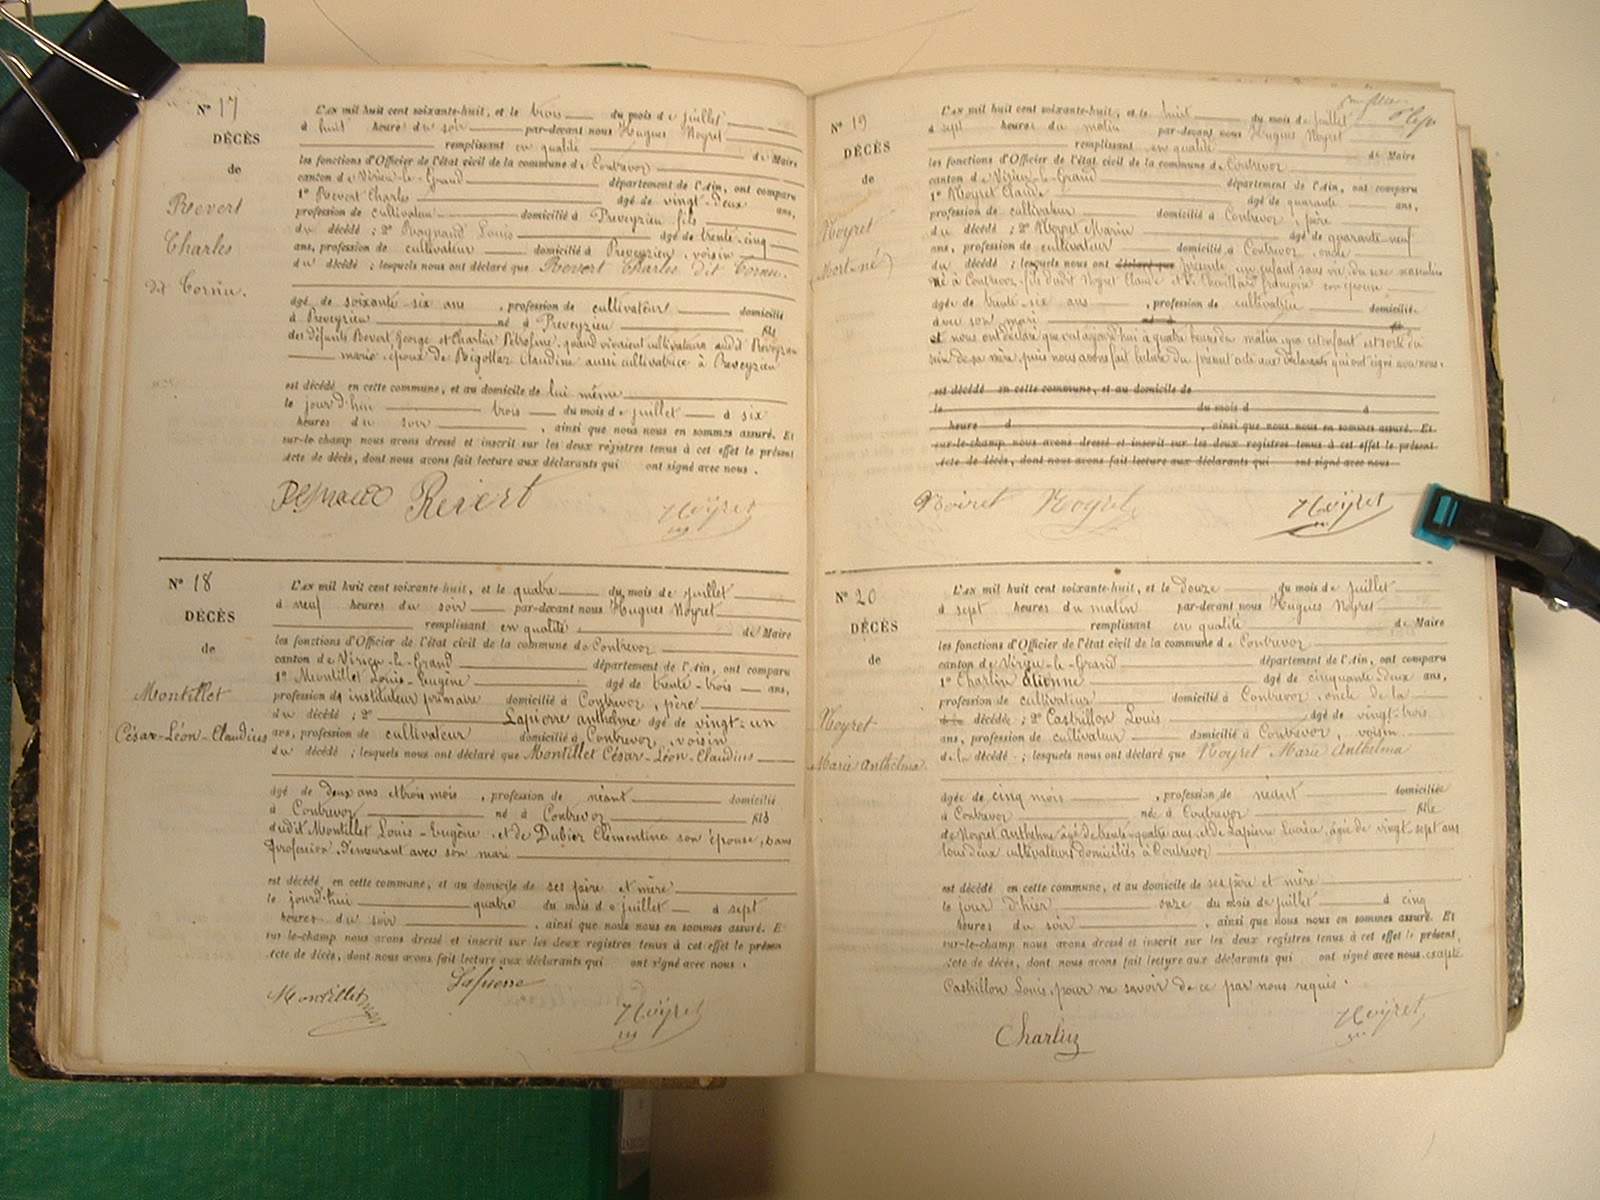 N° 17
DÉCÈS
de
Revert
Charles
dit Cornu.
L'AN mil huit cent soixante-huit, et le trois du mois de juillet
à huit heures du soir par-devant nous Hugues Noyret
remplissant en qualité de Maire
les fonctions d'Officier de l'état civil de la commune de Contrevoz
canton de Virieu-le-Grand département de l'Ain, ont comparu
1° Revert Charles âgé de vingt-deux ans,
profession de cultivateur domicilié à Preveyzieu fils
du décédé ; 2° Reynaud Louis âgé de trente-cinq
ans, profession de cultivateur domicilié à Preveyzieu, voisin
du décédé ; lesquels nous ont déclaré que Revert Charles dit Cornu.
âgé de soixante-six ans, profession de cultivateur domicilié
à Preveyzieu né à Preveyzieu fils
des défunts Revert George et Charlin quand vivaient cultivateurs audit Preveyzieu
marié époux de Bigollet Claudine aussi cultivatrice à Preveyzieu
est décédé en cette commune, et au domicile de lui même
le jourd'hui trois du mois de juillet à six
heures du soir, ainsi que nous nous en sommes assuré. Et
sur-le-champ nous avons dressé et inscrit sur les deux registres tenus à cet effet le présent
acte de décès, dont nous avons fait lecture aux déclarants qui ont signé avec nous.
Revert Noyret
N° 18
DÉCÈS
de
Montillet
César-Léon-Claudius
L'AN mil huit cent soixante-huit, et le quatre du mois de juillet
à neuf heures du soir par-devant nous Hugues Noyret
remplissant en qualité de Maire
les fonctions d'Officier de l'état civil de la commune de Contrevoz
canton de Virieu-le-Grand département de l'Ain, ont comparu
1° Montillet Louis-Eugène âgé de trente-trois ans,
profession de instituteur primaire domicilié à Contrevoz, père
du décédé ; 2° Lapierre anthelme âgé de vingt-un
ans, profession de cultivateur domicilié à Contrevoz, voisin
du décédé ; lesquels nous ont déclaré que Montillet César-Léon-Claudius
âgé de deux ans et trois mois, profession de néant domicilié
à Contrevoz né à Contrevoz fils
dudit Montillet Louis-Eugène et de Dubier Clémentine son épouse, sans
profession, demeurant avec son mari
est décédé en cette commune, et au domicile de ses père et mère
le jourd'hui quatre du mois de juillet à sept
heures du soir, ainsi que nous nous en sommes assuré. Et
sur-le-champ nous avons dressé et inscrit sur les deux registres tenus à cet effet le présen
acte de décès, dont nous avons fait lecture aux déclarants qui ont signé avec nous.
Montillet Lapierre Noyret
N° 19
DÉCÈS
de
Noyret
(Mort-né)
L'AN mil huit cent soixante-huit, et le huit du mois de juillet
à sept heures du matin par-devant nous Hugues Noyret
remplissant en qualité de Maire
les fonctions d'Officier de l'état civil de la commune de Contrevoz
canton de Virieu-le-Grand département de l'Ain, ont comparu
1° Noyret Claude âgé de quarante ans,
profession de cultivateur domicilié à Contrevoz, père
du décédé ; 2° Noyret Marin âgé de quarante-neuf
ans, profession de cultivateur domicilié à Contrevoz, oncle
du décédé ; lesquels nous ont déclaré que présenté un enfant sans vie, du sexe masculin
né à Contrevoz, fils dudit Noyret Claude et de françoise son épouse
âgée de trente-six ans, profession de cultivatrice domicilié
avec son mari né à fils
et nous ont déclaré que cejourd'hui à quatre heures du matin, que cet enfant est sorti du
sein de sa mère, puis nous avons fait lecture du présent acte aux déclarants qui ont signé avec nous.
est décédé en cette commune, et au domicile de
le du mois d à
heure d, ainsi que nous nous en sommes assuré. Et
sur-le-champ nous avons dressé et inscrit sur les deux registres tenus à cet effet le présent
acte de décès, dont nous avons fait lecture aux déclarants qui ont signé avec nous
Noiret Noyret Noyret
N° 20
DÉCÈS
de
Noyret
Marie Anthelma
L'AN mil huit cent soixante-huit, et le douze du mois de juillet
à sept heures du matin par-devant nous Hugues Noyret
remplissant en qualité de Maire
les fonctions d'Officier de l'état civil de la commune de Contrevoz
canton de Virieu-le-Grand département de l'Ain, ont comparu
1° Charlin étienne âgé de cinquante-deux ans,
profession de cultivateur domicilié à Contrevoz, oncle de la
décédée ; 2° Castrillon Louis âgé de vingt-trois
ans, profession de cultivateur domicilié à Contrevoz, voisin
de la décédé ; lesquels nous ont déclaré que Noyret Marie Anthelma
âgée de cinq mois, profession de néant domiciliée
à Contrevoz née à Contrevoz fille
de Noyret Anthelme âgé de trente-quatre ans, et de Lapierre âgée de vingt-sept ans
tous deux cultivateurs domiciliés à Contrevoz
est décédé en cette commune, et au domicile de ses père et mère
le jour d'hier onze du mois de juillet à cinq
heures du soir, ainsi que nous nous en sommes assuré. Et
sur-le-champ nous avons dressé et inscrit sur les deux registres tenus à cet effet le présent,
acte de décès, dont nous avons fait lecture aux déclarants qui ont signé avec nous excepté
Castrillon Louis, pour ne savoir de ce par nous requis.
Charlin Noyret